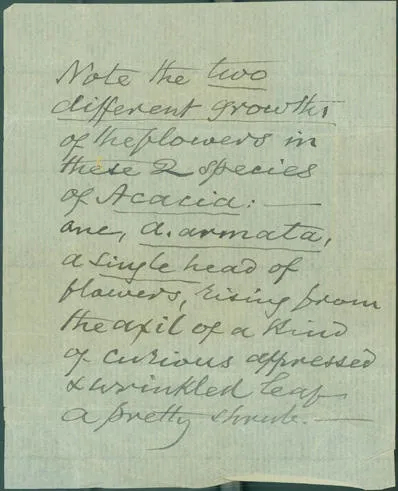 Note the two
different growths
of the flowers in
these 2 species
of Acacia: —
one, A. armata,
a single head of
flowers, rising from
the axil of a kind
of curious appressed
& wrinkled leaf
a pretty shrub. —